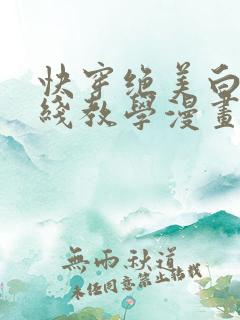 快穿绝美白
线教學漫畫
無雨秋道
未经同意禁止转载